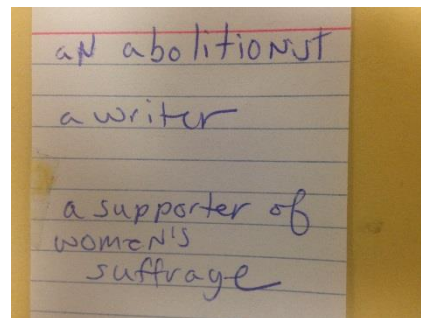 aN abolitioNist
a writer
a supporter of
womeN's
suffrage